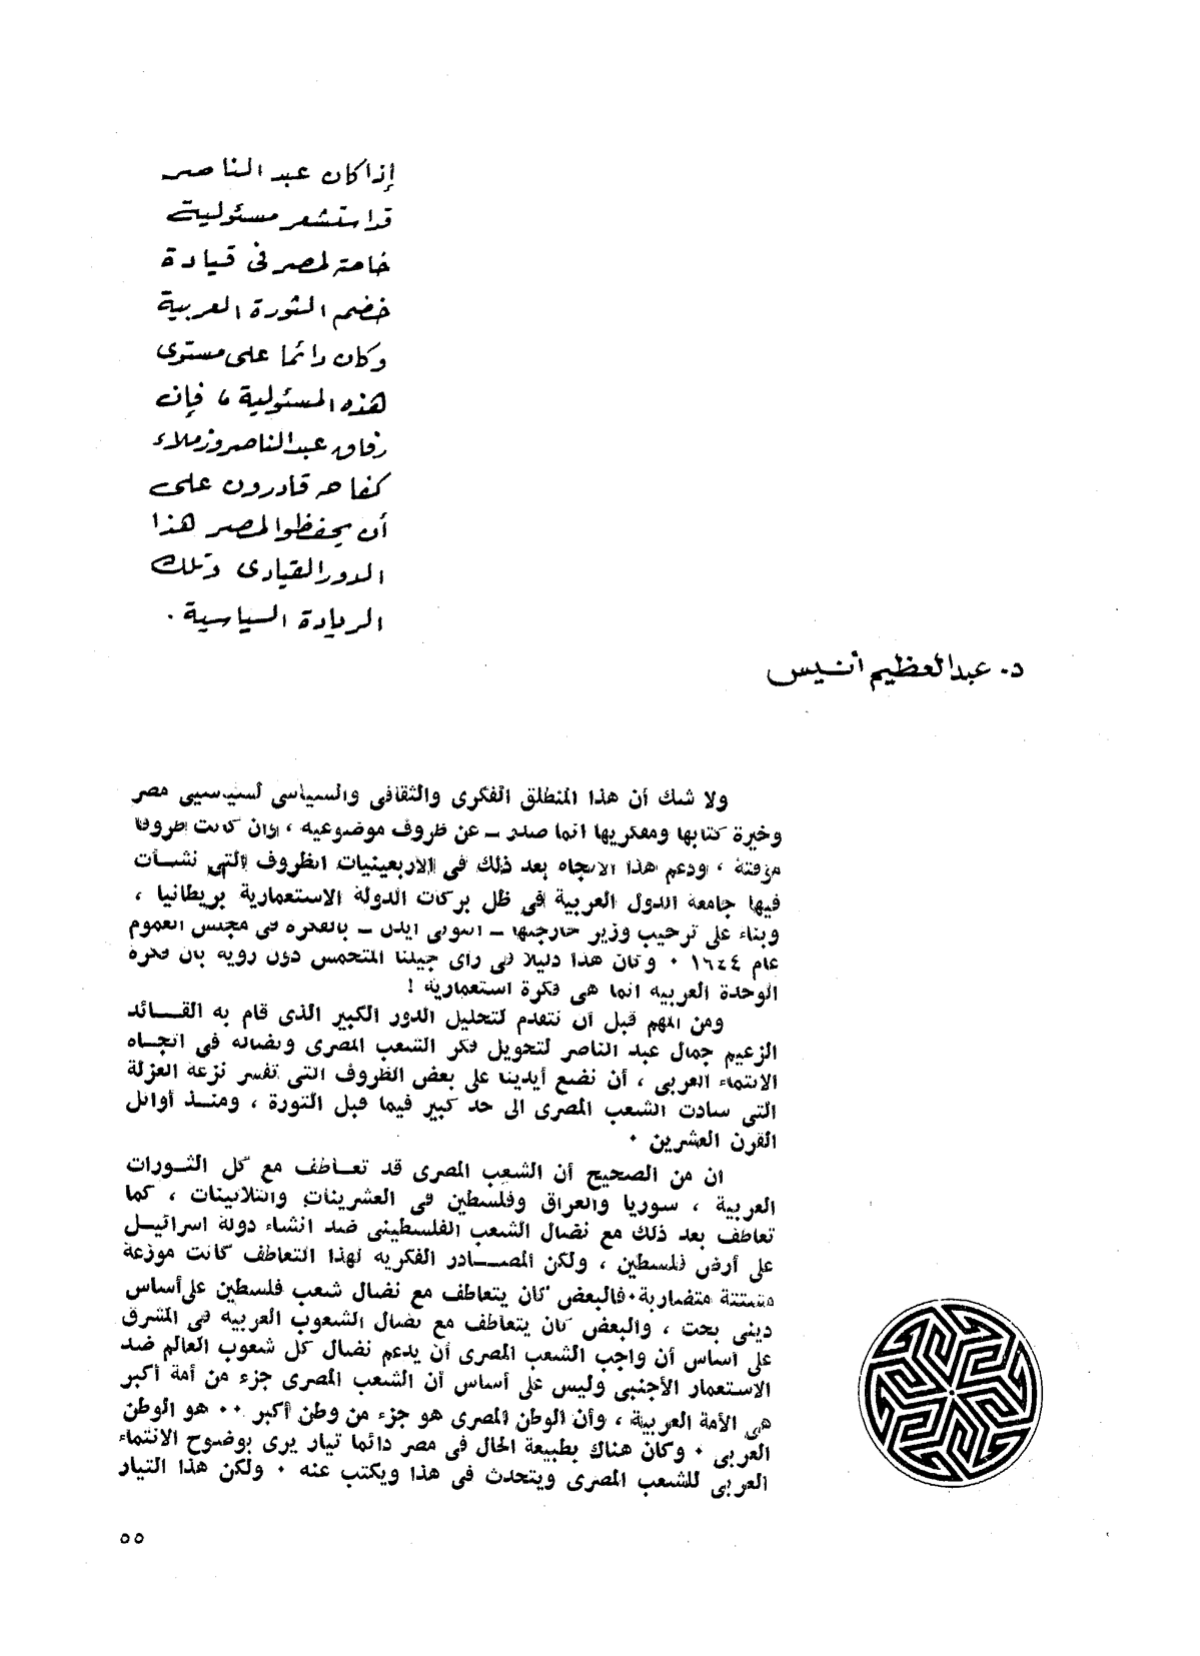 إذا كان عبد الناصر
قد استشعر مسئولية
خاصة لمصر فى قيادة
خضم الثورة العربية
وكان دائما على مستوى
هذه المسئولية ، فإن
رفاق عبد الناصر وزملاء
كفاحه قادرون على
أن يحفظوا لمصر هذا
الدور القيادى وتلك
الريادة السياسية .
د. عبد العظيم أنيس
ولا شك أن هذا المنطلق الفكرى والثقافى والسياسى لسياسيى مصر
وخيرة كتابها ومفكريها انما صدر ــ عن ظروف موضوعية ، وان كانت ظروفا
مؤقتة ، ودعم هذا الاتجاه بعد ذلك فى الاربعينيات الظروف التى نشـــأت
فيها جامعة الدول العربية فى ظل بركات الدولة الاستعمارية بريطانيا ،
وبناء على ترحيب وزير خارجيتها ــ انتونى ايدن ــ بالفكرة فى مجلس العموم
عام ١٩٤٤ ٠ وكان هذا دليلا فى رأى جيلنا المتحمس دون روية بأن فكرة
الوحدة العربية انما هى فكرة استعمارية !
ومن المهم قبل أن نتقدم لتحليل الدور الكبير الذى قام به القـــائد
الزعيم جمال عبد الناصر لتحويل فكر الشعب المصرى ونضاله فى اتجـاه
الانتماء العربى ، أن نضع أيدينا على بعض الظروف التى تفسر نزعة العزلة
التى سادت الشعب المصرى الى حد كبير فيما قبل الثورة ، ومنـــذ أوائل
القرن العشرين ٠
ان من الصحيح أن الشعب المصرى قد تعــاطف مع كل الثــورات
العربية ، سوريا والعراق وفلسطين فى العشرينات والثلاثينات ، كما
تعاطف بعد ذلك مع نضال الشعب الفلسطينى ضد انشاء دولة اسرائيــل
على أرض فلسطين ، ولكن المصـــادر الفكرية لهذا التعاطف كانت موزعة
مشتتة متضاربة٠فالبعض كان يتعاطف مع نضال شعب فلسطين على أساس
دينى بحت ، والبعض كان يتعاطف مع نضال الشعوب العربية فى المشرق
على أساس أن واجب الشعب المصرى أن يدعم نضال كل شعوب العالم ضد
الاستعمار الأجنبى وليس على أساس أن الشعب المصرى جزء من أمة أكبر
هى الأمة العربية ، وأن الوطن المصرى هو جزء من وطن أكبر ٠٠ هو الوطن
العربى ٠ وكان هناك بطبيعة الحال فى مصر دائما تيار يرى بوضوح الانتماء
العربى للشعب المصرى ويتحدث فى هذا ويكتب عنه ٠ ولكن هذا التيار
٥٥